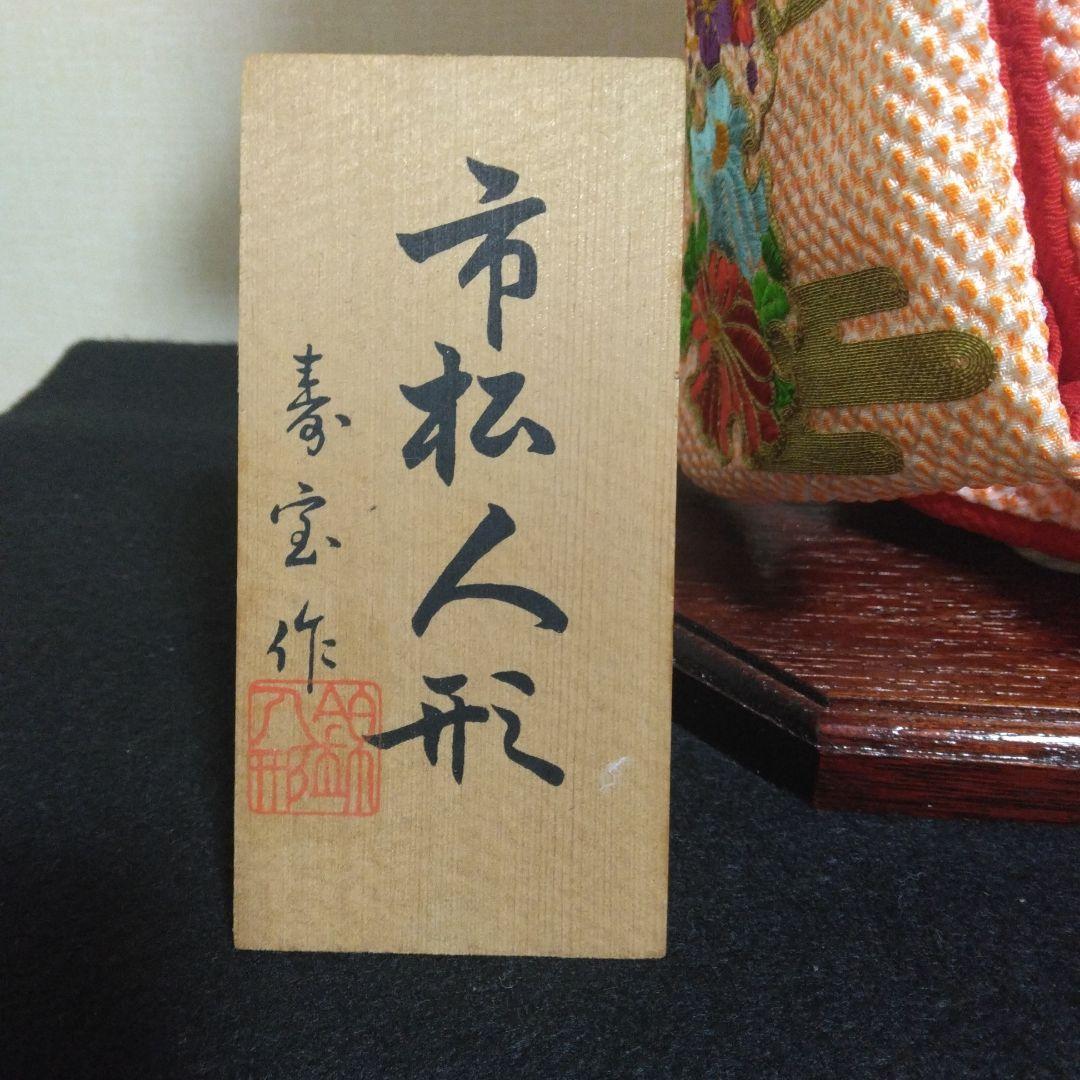 市松人形
寿宝作